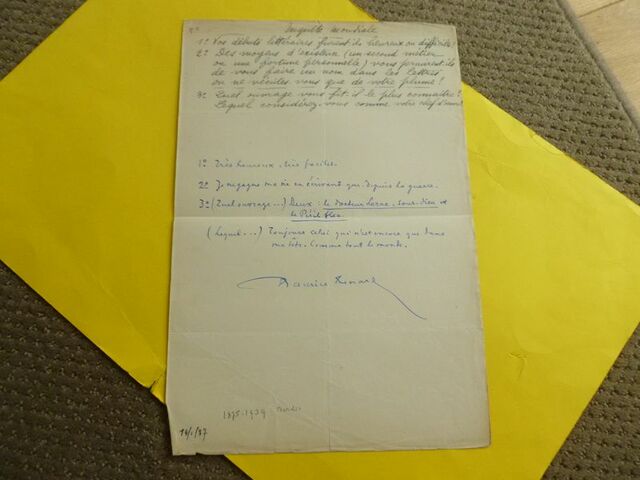 Enquête mondiale
1º Vos débuts littéraires furent-ils heureux ou difficiles?
2º Des moyens d'existence (un second métier
ou une fortune personnelle) vous permirent-ils
de vous faire un nom dans les lettres
ou ne vécûtes vous que de votre plume?
3º Quel ouvrage vous fit-il le plus connaître?
Lequel considérez-vous comme votre chef d'œuvre
1º Très heureux, très faciles.
2º Je ne gagne ma vie en écrivant que depuis la guerre.
3º (Quel ouvrage...) Deux: le Docteur Lerne, sous-dieu et
le Péril Bleu
(Lequel...) Toujours celui qui n'est encore que dans
ma tête. Comme tout le monde.
Maurice Renard
1875-1939